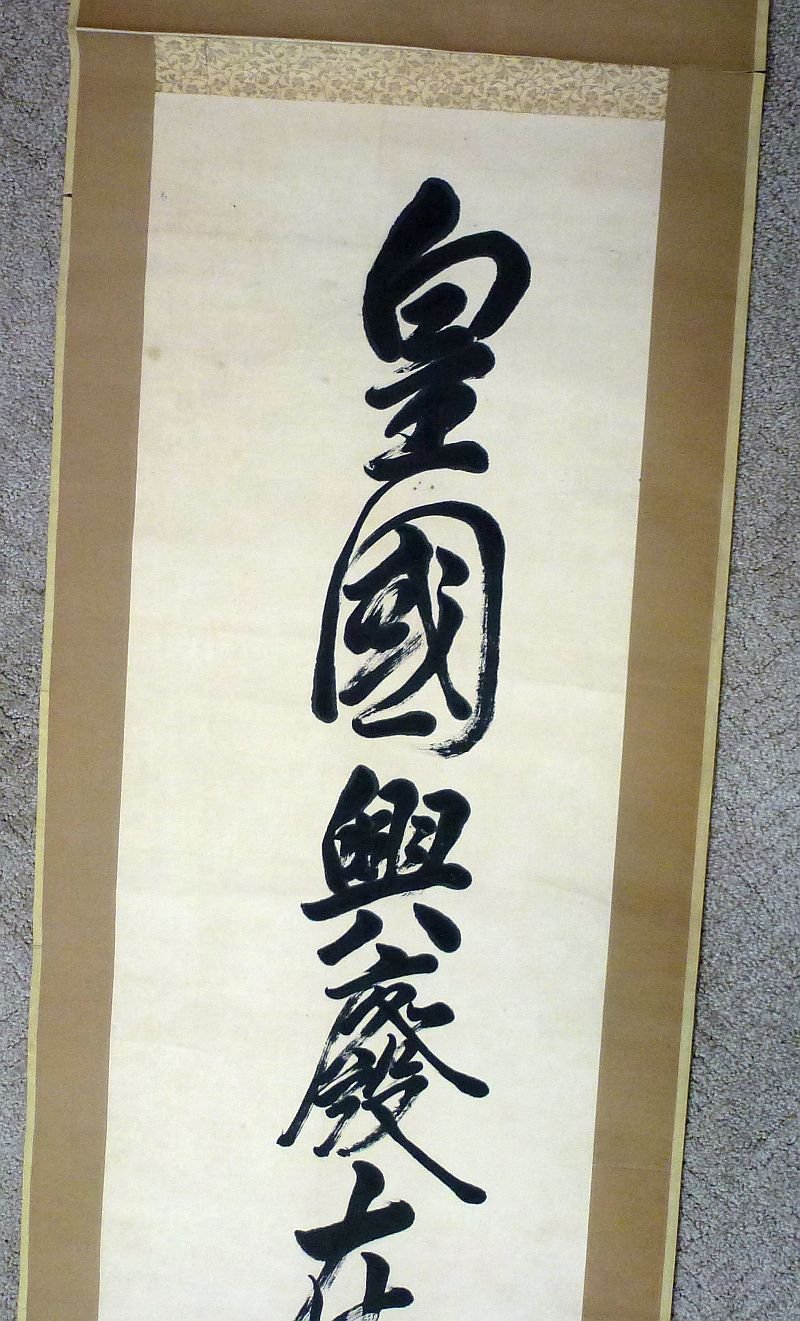 皇國興廢在